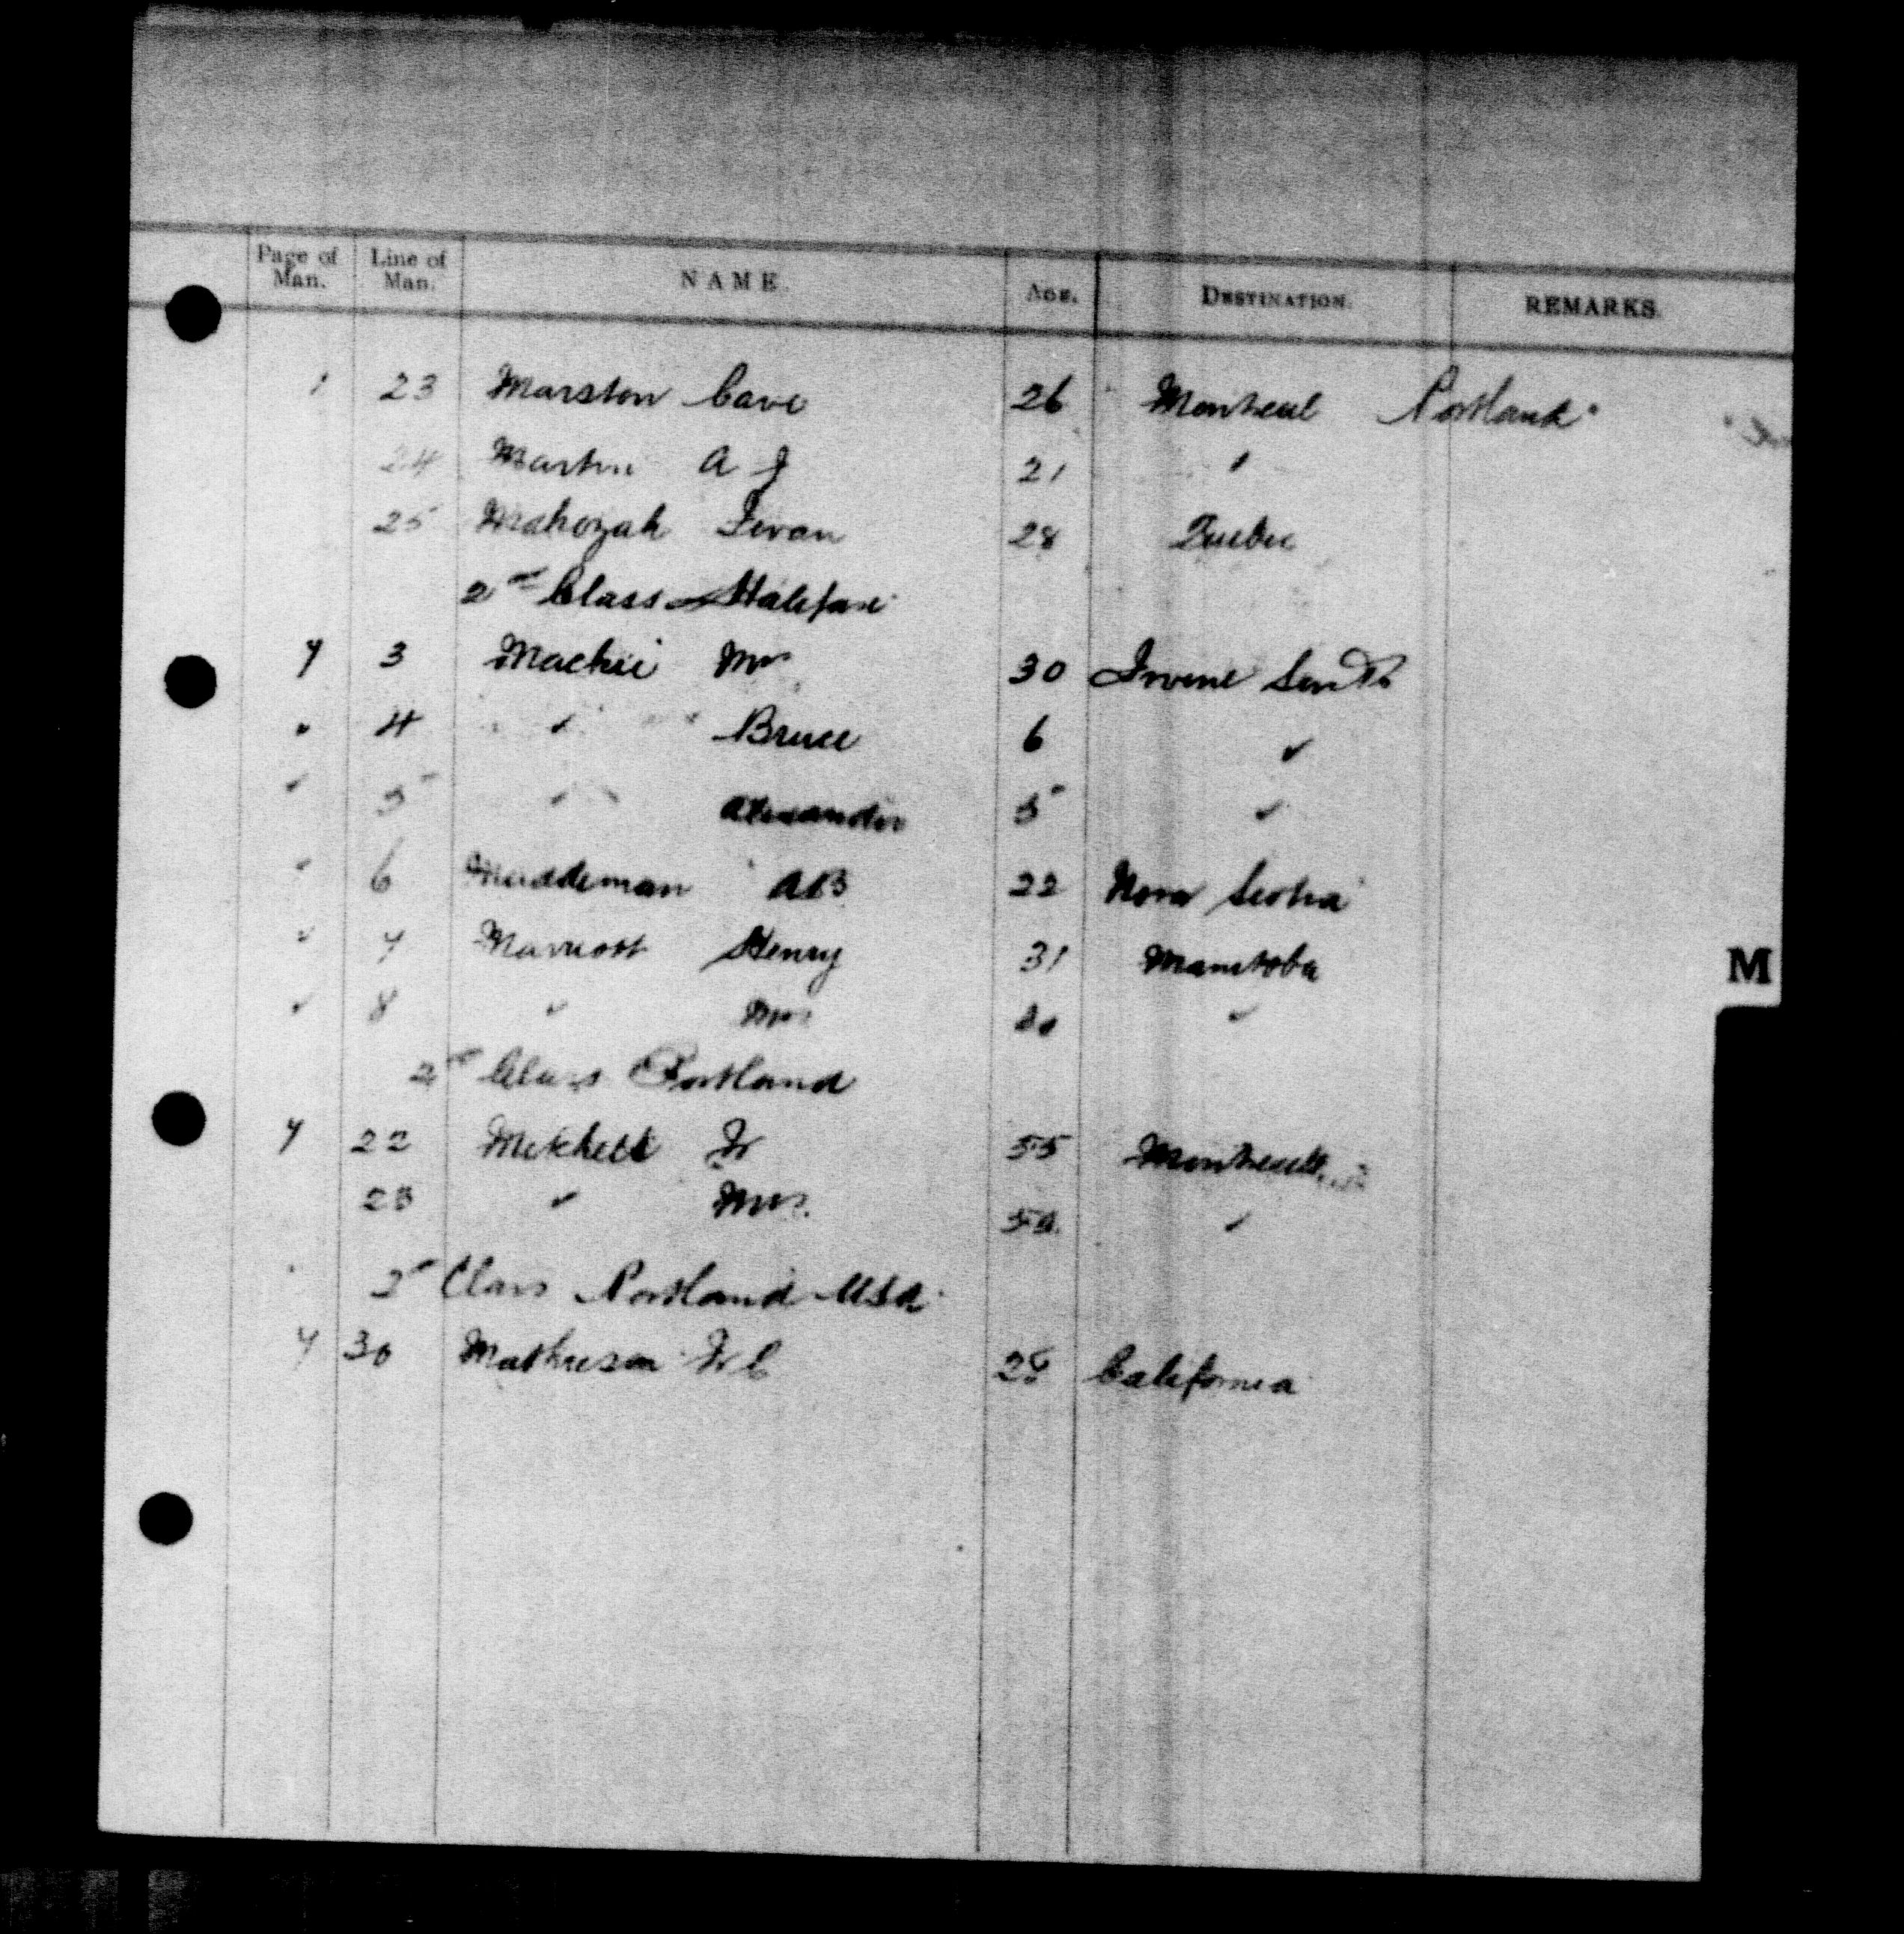 Page of Man. Line of Man. NAME. AGE. DESTINATION. REMARKS.
1 23 Marston Cave 26 Montreal Portland
24 Martin A J 21 "
25 Mahozak Iwan 28 Quebec
2nd Class Halifax
7 3 Mackie Mrs 30 Irvine
" 4 " Bruce 6 "
" 5 " Alexander 5 "
" 6 Maddeman AB 22 Nova Scotia
" 7 Marriott Henry 31 Manitoba
M
" 8 " Mrs "
2nd Class Portland
7 22 Mitchell W 55 Montreal
23 " Mrs. "
2nd Class Portland USA
7 30 Mathieson W C California